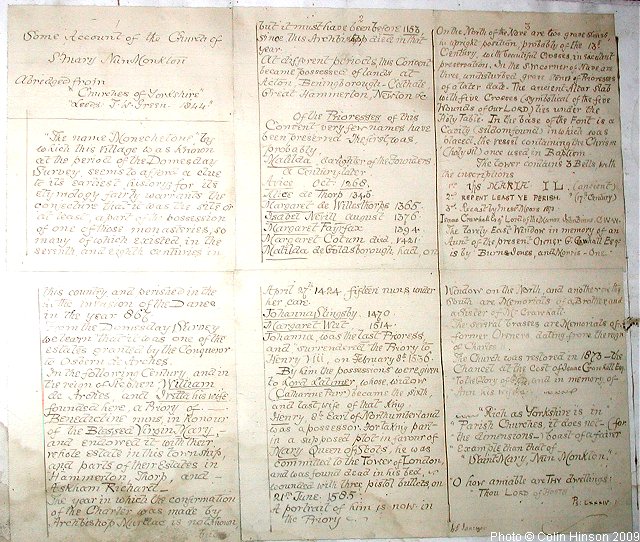 1
Some Account of the Church of
St Mary Nun Monkton
Abridged from
"Churches of Yorkshire"
Leeds T.W. Green. 1844
"The name Monechetone" by
which this Village was known
at the period of the Domesday
Survey seems to afford a clue
to its earliest history for its
etymology fairly warrants the
conjecture it was the site or
at least a part of the possession
of one of those monasteries, so
many of which existed in the
seventh and eighth centuries in
this country and perished in the
invasion of the Danes
in the year 867
From the Domesday Survey
we learn that it was one of the
estates granted by the Conqueror
to Osbern de Arches.
In the following Century, and in
the reign of Stephen William
de Arches, and Ivetta his wife
founded here, a Priory of
Benedictine nuns, in honour
of the Blessed Virgin Mary,
and endowed it with their
whole estate in this township
and parts of their Estates in
Hammerton, Thorp, and
Askham Richard.
The year in which the confirmation
of the Charter was made by
Archbishop Murdac is not known
2
but it must have been before 1153
since this Archbishop died in that
year.
At different periods this Convent
became possessed of lands at
Acton, Benningborough - Cathale
Great Hammerton, Newton &c
Of the Prioresses of this
Convent very few names have
been preserved. The first was,
probably
Matilda daughter of the Founders
a Century later
Avice Oct. 1268.
Alice de Thorp 1346
Margaret de Willesthorpe 1365.
Isabel Nevill August 1376
Margaret Fairfax 1394.
Margaret Cotum died 1421.
Matilda de Goldsborough had, on
April 27th 1424 fifteen nuns under
her care.
Johanna Slingsby 1470
Margaret Wilt 1514.
Johanna, was the last Prioress,
and surrendered the Priory to
Henry VIII, on February 8th 1536.
By him the possessions were given
to Lord Latimer whose widow
Catharine Parr became the sixth
and last wife of that King
Henry 8th Earl of Northumberland
was a possessor. For taking part
in a supposed plot in favour of
Mary Queen of Scots, he was
committed to the Tower of London,
and was found dead in his bed,
wounded with three pistol bullets, on
21st June 1585.
A portrait of him is now in
the Priory
3
On the North of the Nave are two grave stones
in upright position, probably of the 13th
Century, with beautiful Crosses, in excellent
preservation. In the S.W. corner of Nave are
three undisturbed grave stones of Prioresses
of a later date. The ancient Altar Slab
with five Crosses (symbolical of the five
Wounds of Our LORD) lies under the
Holy Table. In the base of the Font is a
Cavity in which was
placed, the vessel containing the Chrism
(Holy Oil) once used in Baptism
The tower contains 3 Bells with
the inscriptions
1st IHS MARIA IL (ancient)
2nd REPENT LEAST YE PERISH (17th Century)
The lovely East Window in memory of an
Aunt of the present Owner G. Crawhall Esqr
is by Burne Jones, and Morris - One
Window on the North, and another on the
South are Memorials of a Brother and
a Sister of Mr Crawhall
The several brasses are Memorials of
former Owners dating from the reign
of Charles
The Church was restored in 1873 - the
Chancel at the Cost of Isaac Crawhall Esqr
To the Glory of God, and in memory of
Ann his wife
"Rich as Yorkshire is in
"Parish Churches, it does not - (for
the dimensions - ) boast of a fairer
Example than that of
Saint Mary, Nun Monkton."
O how amiable are Thy dwellings:
Thou LORD of Hosts
Ps. Lxxxiv. 1
Photo © Colin Hinson 2009